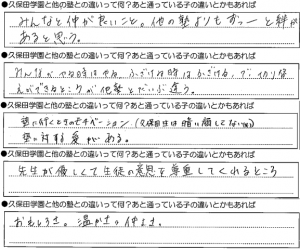 ●久保田学園と他の塾との違いって何？あと通っている子の違いとかもあれば
みんなと仲が良いこと。他の塾よりもずっーと絆が
あると思う。
●久保田学園と他の塾との違いって何？あと通っている子の違いとかもあれば
みんながやる時はやる、ふざける時はふざける、で、切り替
えができるところが他塾とだいぶ違う。
●久保田学園と他の塾との違いって何？あと通っている子の違いとかもあれば
塾に行くときのモチベーション(久保田生は暗い顔してない
塾に対する愛がある。
●久保田学園と他の塾との違いって何？あと通っている子の違いとかもあれば
先生が優しくて生徒の意思を尊重してくれるところ
●久保田学園と他の塾との違いって何？あと通っている子の違いとかもあれば
おもしろさ。温かさ。仲よさ。